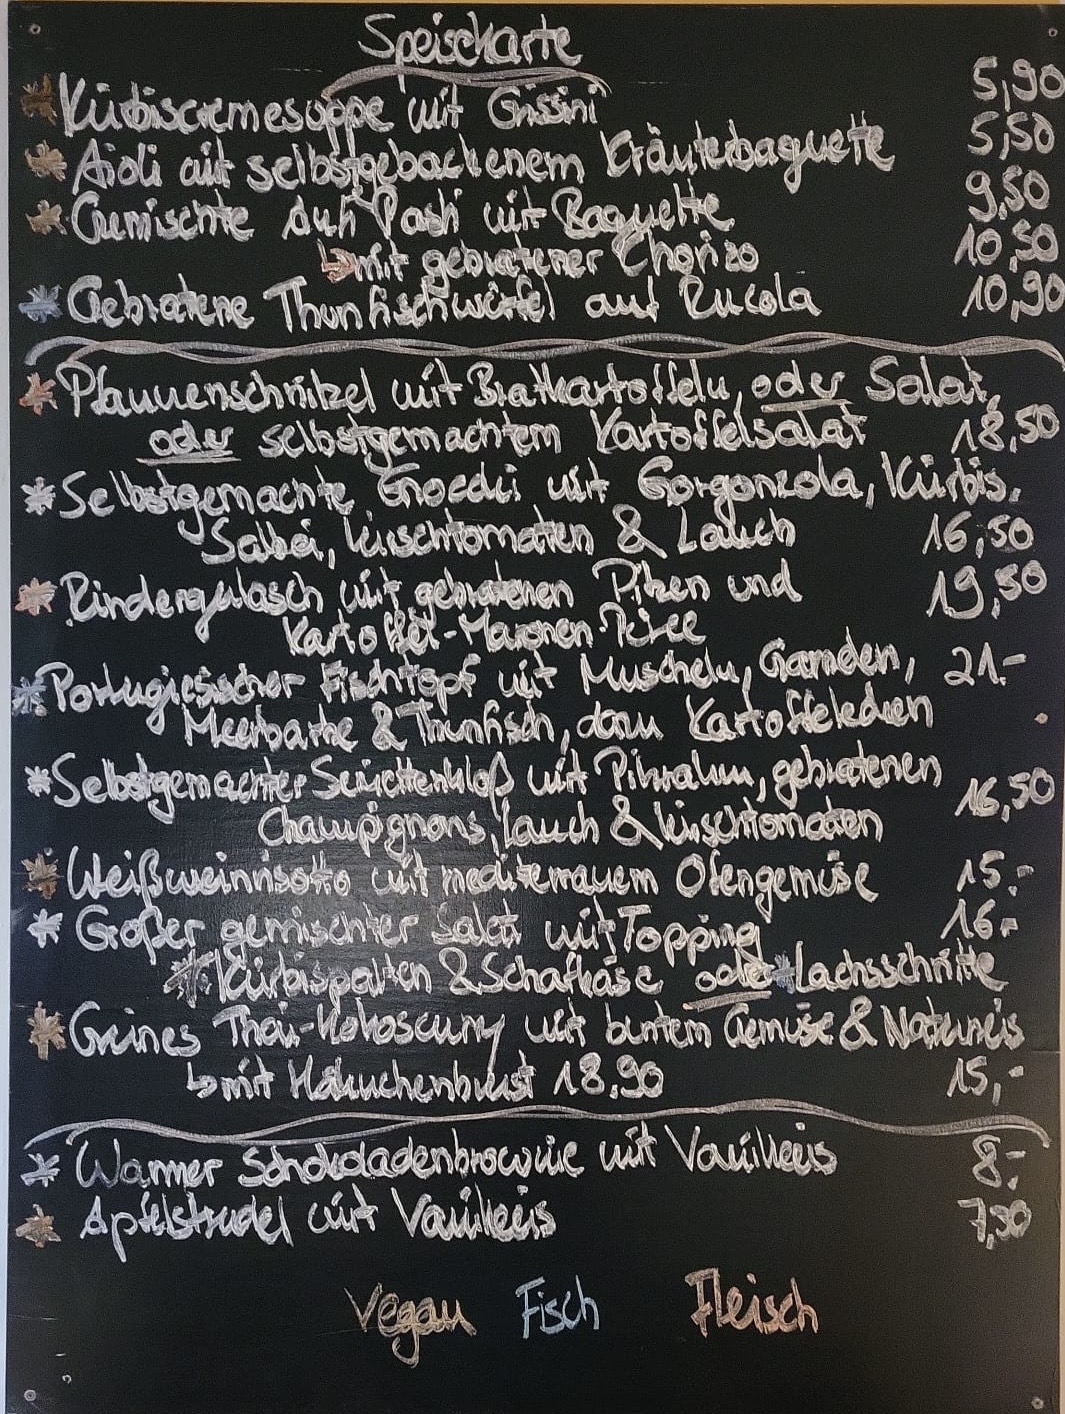 Speisekarte
Kürbiscremesuppe mit Grissini 5,90
Aioli mit selbstgebackenem Kräuterbaguette 5,50
Gemischte Anti Pasti mit Baguette 9,50
↳ mit gebratener Chorizo 10,50
Gebratene Thunfischwürfel auf Rucola 10,90
Pfannenschnitzel mit Bratkartoffeln, oder Salat,
oder selbstgemachtem Kartoffelsalat 18,50
Selbstgemachte Gnocchi mit Gorgonzola, Kürbis,
Salbei, Kirschtomaten & Lauch 16,50
Rindergulasch mit gebratenen Pilzen und 19,50
Kartoffel-Maronen-Püree
Portugiesischer Fischtopf mit Muscheln, Garnelen, 21.-
Meerbarbe & Thunfisch, dazu Kartoffelecken
Selbstgemachter Serviettenkloß mit Pilzrahm, gebratenen 16,50
Champignons, Lauch & Kirschtomaten
Weißweinrisotto mit mediterranem Ofengemüse 15.-
Großer gemischter Salat mit Topping 16-
* Kürbisspalten & Schafkäse oder * Lachsschnitte
Grünes Thai-Kokoscurry mit buntem Gemüse & Naturreis
↳ mit Hähnchenbrust 18,90 15,-
Warmer Schokoladenbrownie mit Vanilleeis 8.-
Apfelstrudel mit Vanilleeis 7,50
Vegan Fisch Fleisch